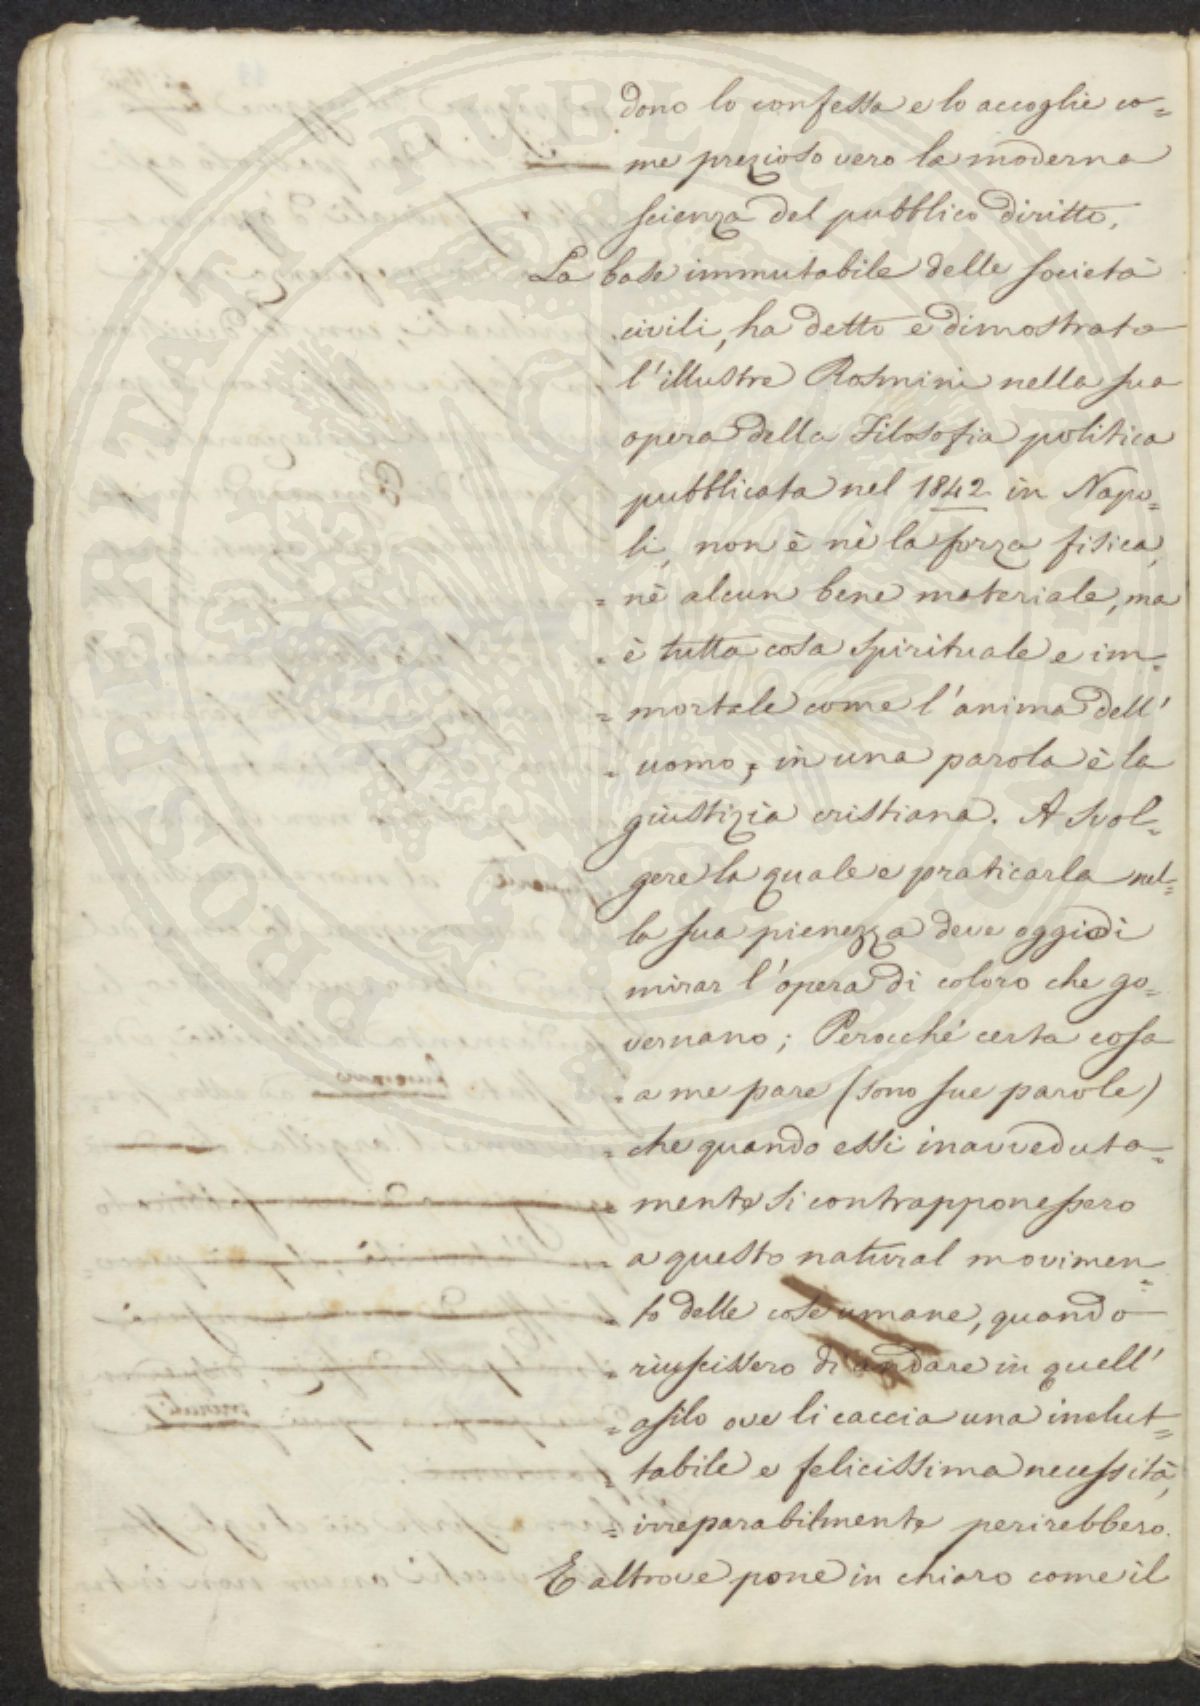 dono lo confessa e lo accoglie co=
me prezioso vero la moderna
scienza del pubblico diritto.
La base immutabile delle società
civili, ha detto e dimostrato
l'illustre Rosmini nella sua
opera della Filosofia politica
pubblicata nel 1842 in Napo=
li, non è nè la forza fisica,
= nè alcun bene materiale, ma
= è tutta cosa spirituale e im=
= mortale come l'anima dell'
= uomo, in una parola è la
giustizia cristiana. A svol=
gere la quale e praticarla nel=
la sua pienezza deve oggidì
mirar l'opera di coloro che go=
vernano; Perocchè certa cosa
= a me pare (sono sue parole)
= che quando essi inavveduta=
= mente si contrapponessero
= a questo natural movimen=
= to delle cose umane, quando
= riuscissero di andare in quell'
= asilo ove li caccia una inelut=
= tabile e felicissima necessità,
= irreparabilmente perirebbero.
E altrove pone in chiaro come il
PROSPERITATI PUBLICAE